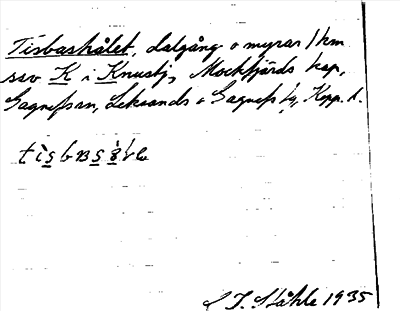 Tisbashålet, dalgång o myrar 1 km
ssv K i Knusbj, Mockfjärds kap,
Gagnefs sn, Leksands o Gagnefs tg, Kopp. l.
C I. Ståhle 1935